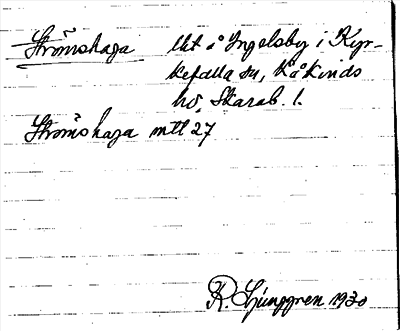 Strömshaga Utt å Ingelsby i Kyr-
kefalla sn, Kåkinds
hd, Skarab. l.
Strömshaga mtl 27
R. Ljunggren 1930